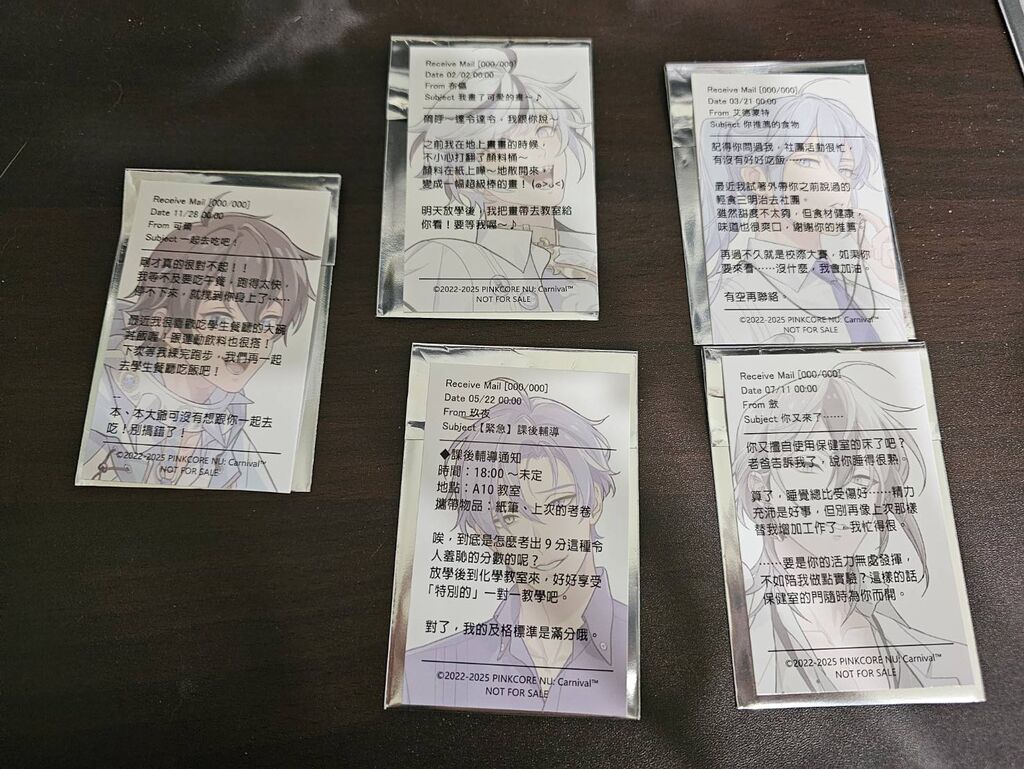 Receive Mail [000/000]
Date 11/28 00:00
From 可爾
Subject 一起去吃吧！
剛才真的很對不起！！
我等不及要吃午餐，跑得太快，
停不下來，就撞到你身上了……
最近我很喜歡吃學生餐廳的大碗
丼飯喔！跟運動飲料也很搭！
下次等我練完跑步，我們再一起
去學生餐廳吃飯吧！
--
本、本大爺可沒有想跟你一起去
吃！別搞錯了！
©2022-2025 PINKCORE NU: Carnival™
NOT FOR SALE
Receive Mail [000/000]
Date 02/02 00:00
From 布儡
Subject 我畫了可愛的畫～♪
嗚呼～達令達令，我跟你說～
之前我在地上畫畫的時候，
不小心打翻了顏料桶～
顏料在紙上嘩～地散開來，
變成一幅超級棒的畫！(๑>ᴗ<)
明天放學後，我把畫帶去教室給
你看！要等我喔～♪
©2022-2025 PINKCORE NU: Carnival™
NOT FOR SALE
Receive Mail [000/000]
Date 03/21 00:00
From 艾德蒙特
Subject 你推薦的食物
記得你問過我，社團活動很忙，
有沒有好好吃飯……
最近我試著外帶你之前說過的
輕食三明治去社團。
雖然甜度不太夠，但食材健康，
味道也很爽口，謝謝你的推薦。
再過不久就是校際大賽，如果你
要來看……沒什麼，我會加油。
有空再聯絡。
©2022-2025 PINKCORE NU: Carnival™
NOT FOR SALE
Receive Mail [000/000]
Date 05/22 00:00
From 玖夜
Subject【緊急】課後輔導
◆課後輔導通知
時間：18:00 ～未定
地點：A10 教室
攜帶物品：紙筆、上次的考卷
唉，到底是怎麼考出 9 分這種令
人羞恥的分數的呢？
放學後到化學教室來，好好享受
「特別的」一對一教學吧。
對了，我的及格標準是滿分哦。
©2022-2025 PINKCORE NU: Carnival™
NOT FOR SALE
Receive Mail [000/000]
Date 07/11 00:00
From 斂
Subject 你又來了……
你又擅自使用保健室的床了吧？
老爸告訴我了，說你睡得很熟。
算了，睡覺總比受傷好……精力
充沛是好事，但別再像上次那樣
替我增加工作了。我忙得很。
……要是你的活力無處發揮，
不如陪我做點實驗？這樣的話，
保健室的門隨時為你而開。
©2022-2025 PINKCORE NU: Carnival™
NOT FOR SALE